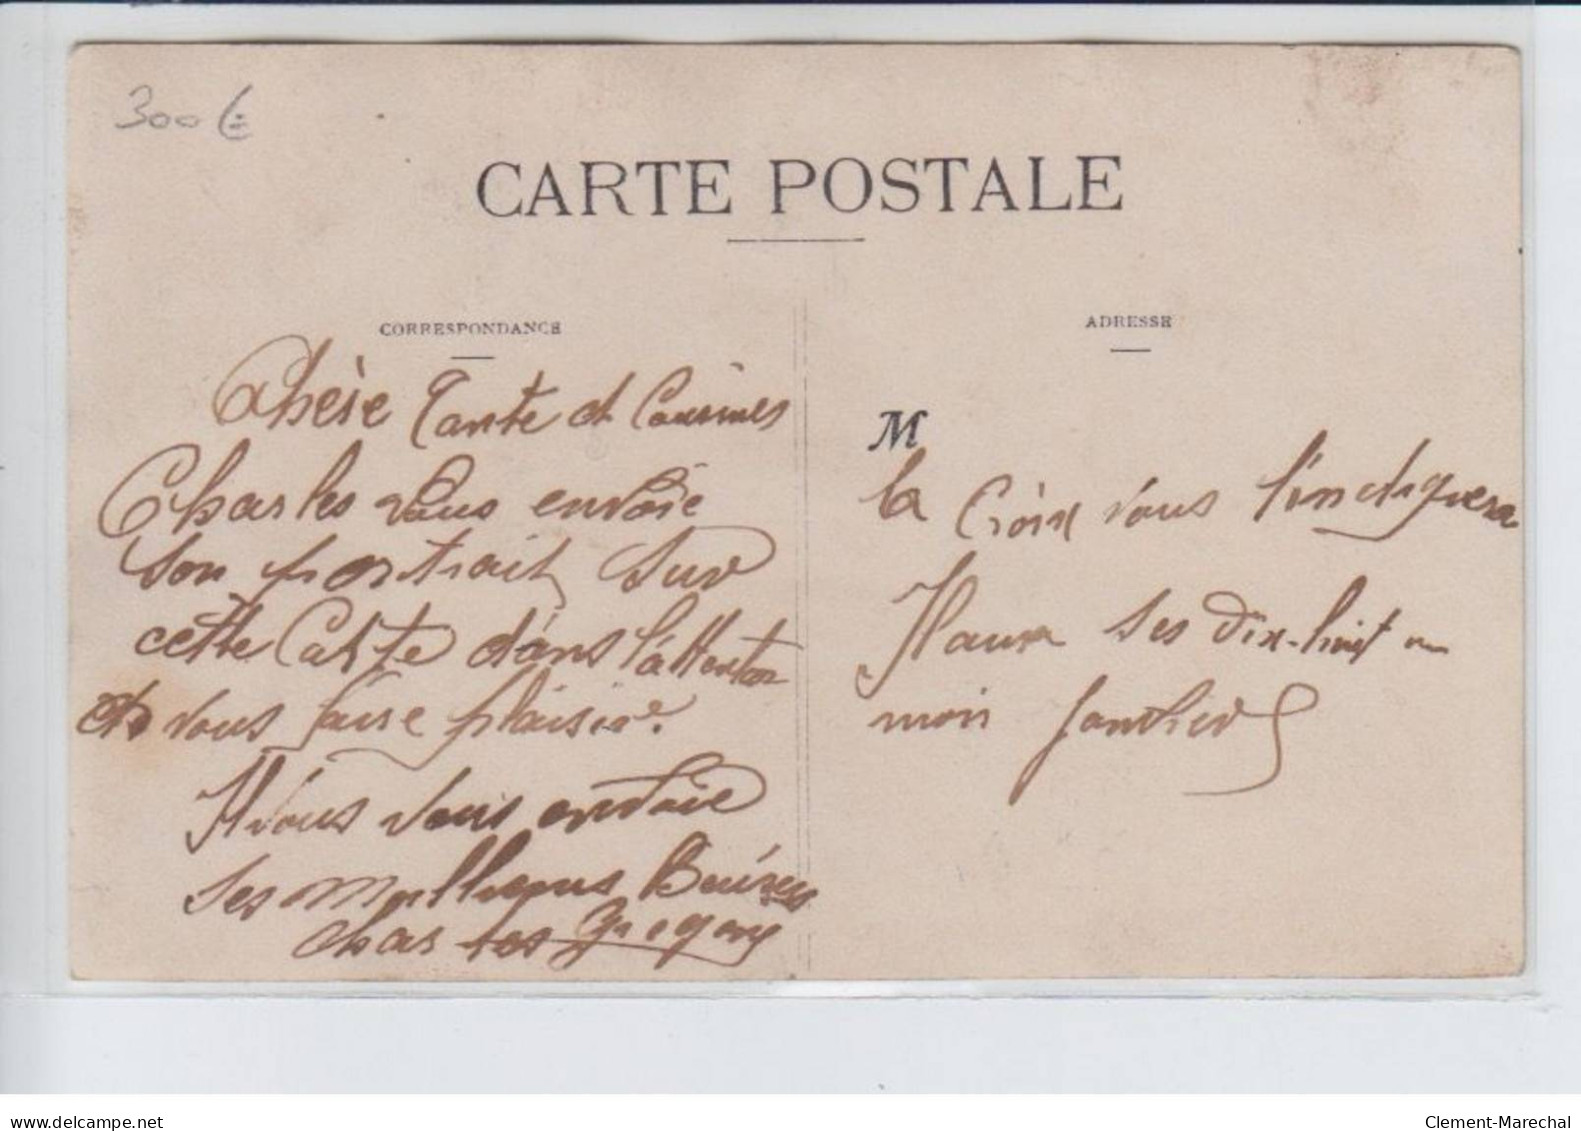 300 €
CARTE POSTALE
CORRESPONDANCE
Chère Tante et Cousines
Charles vous envoie
son portrait sur
cette Carte dans l'attention
de vous faire plaisir.
Nous vous envoie
ses meilleurs Baisers
Charles
ADRESSE
M
la Croix vous l'indiquera
Il aura ses dix-huit
mois Janvier
delcampe.net
Clement-Marechal